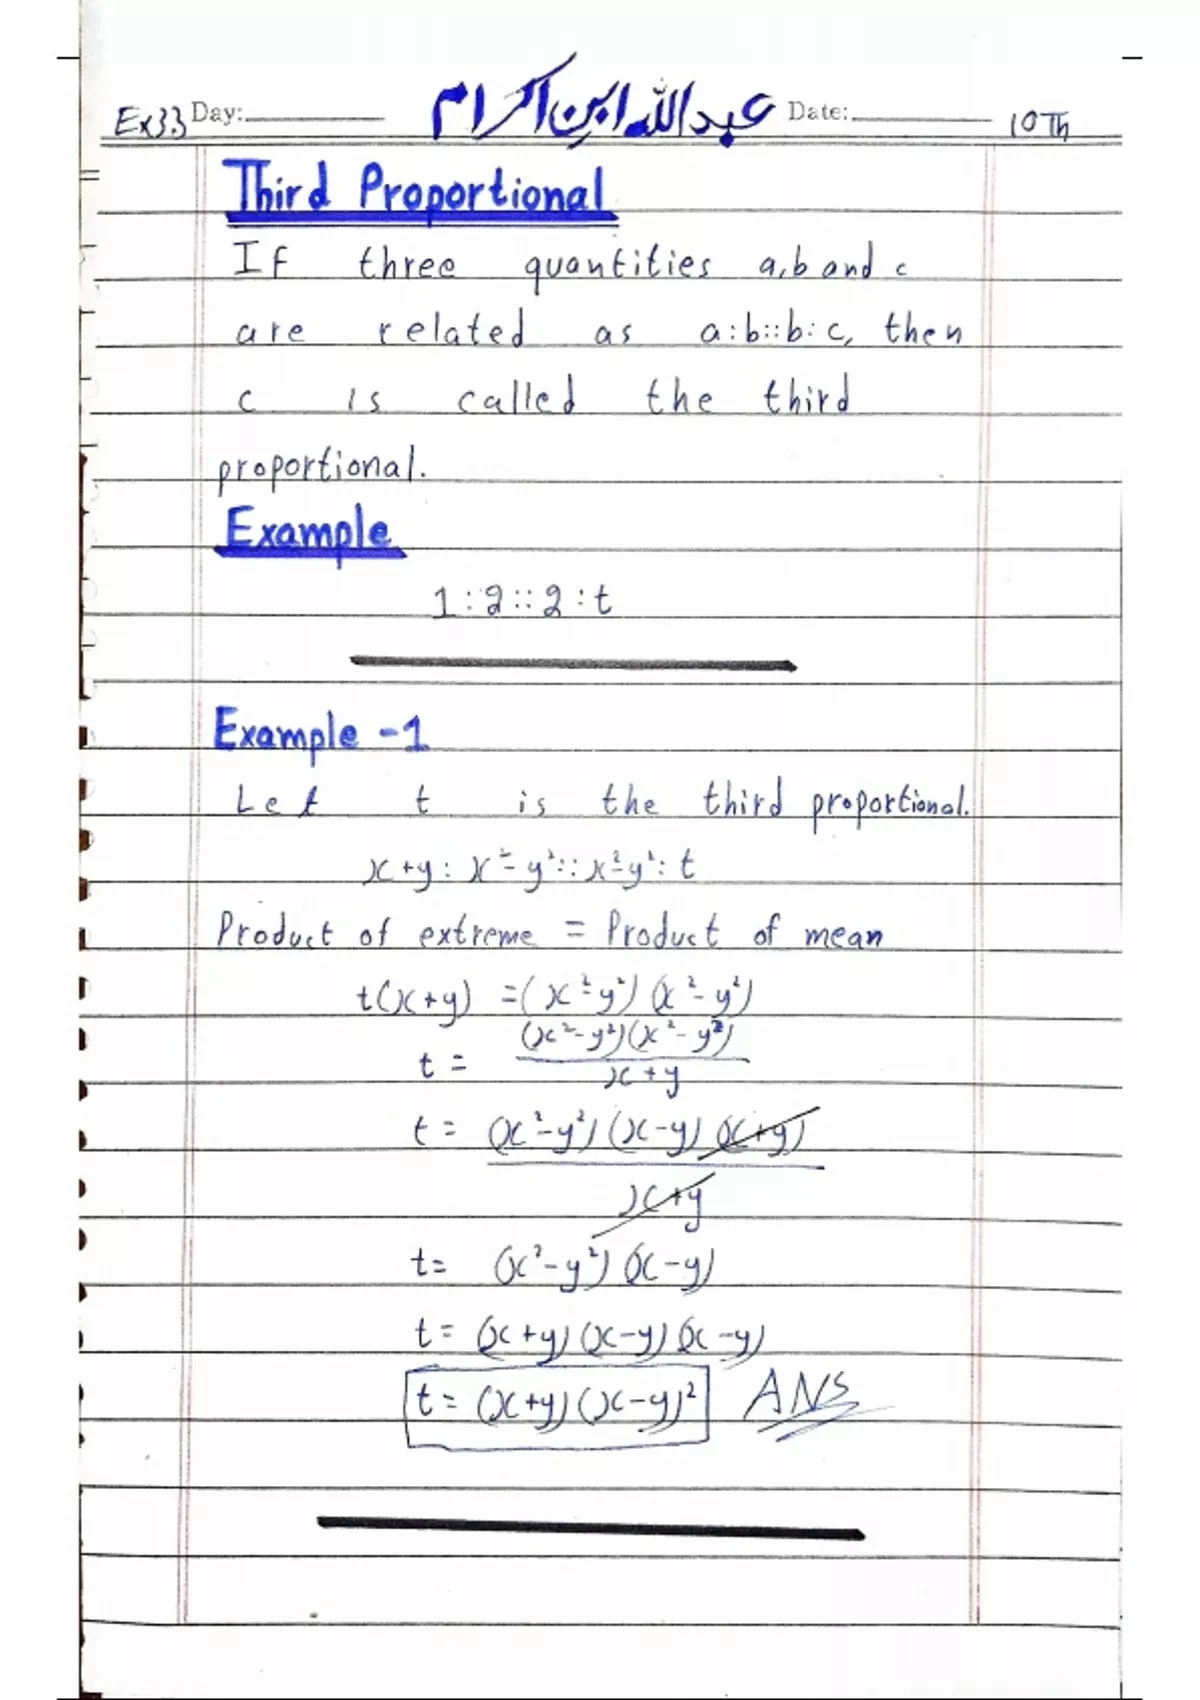 Ex3.3 Day: عبداللہ ابن اکرام Date: 10Th
Third Proportional
If three quantities a,b and c
are related as a:b::b:c, then
c is called the third
proportional.
Example
1:2::2:t
Example -1
Let t is the third proportional.
x+y : x²-y² :: x²-y² : t
Product of extreme = Product of mean
t(x+y) = (x²-y²)(x²-y²)
t = (x²-y²)(x²-y²)
x+y
t = (x²-y²)(x-y)(x+y)
x+y
t= (x²-y²)(x-y)
t= (x+y)(x-y)(x-y)
t= (x+y)(x-y)² ANS